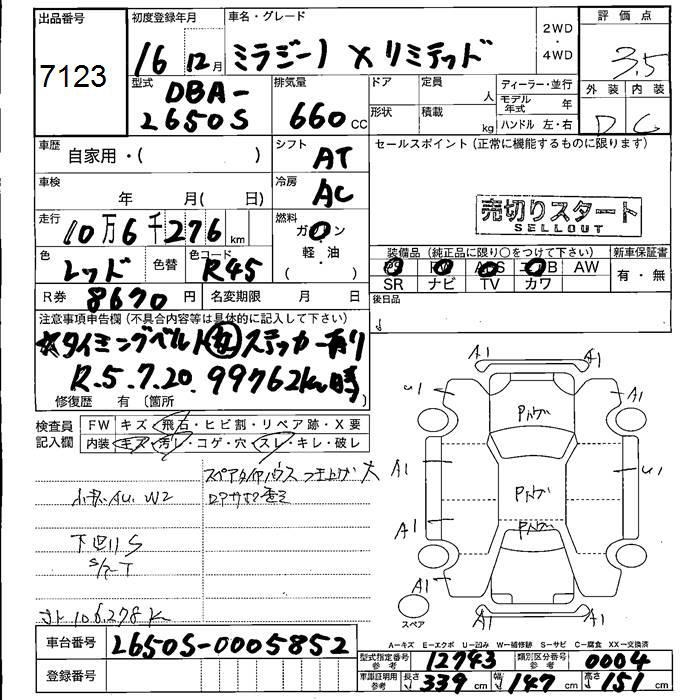 出品番号
7123
初度登録年月
16 12月
車名・グレード
ミラジーノ X リミテッド
2WD
・
4WD
評価点
3.5
型式
DBA-
L650S
排気量
660cc
ドア
定員
人
形状
積載
kg
ディーラー・並行
モデル年式 年
ハンドル 左・右
外装 内装
D C
車歴
自家用・( )
シフト
AT
セールスポイント (正常に機能するものに限ります)
車検
年 月( 日)
冷房
AC
売切りスタート
SELLOUT
走行
10万6千276km
燃料
ガソリン
・
軽・油
( )
色
レッド
色替
色コード
R45
装備品 (純正品に限り○をつけて下さい)
PS PW ABS エアB AW
SR ナビ TV カワ
新車保証書
有・無
R券
8670円
名変期限 月 日
後日品
注意事項申告欄 (不具合内容等は具体的に記入して下さい)
☆タイミングベルト ステッカー有り
R.5.7.20. 99762km時
修復歴 有 〔箇所
検査員
記入欄
FW キズ・飛石・ヒビ割・リペア跡・X要
内装 キズ・汚レ・コゲ・穴・スレ・キレ・破レ
スペアタイヤハウス つき上げ 大
小キズ.AU. W2
下回りS
A1 A1
U1 A1
A1 U1
A1
A1 A1
A1 A1
スペア
車台番号
L650S-0005852
A=キズ E=エクボ U=凹み W=補修跡 S=サビ C=腐食 XX=交換済
型式指定番号 参考
12743
類別区分番号 参考
0004
登録番号
車庫証明用 参考
長さ 339cm
幅 147cm
高さ 151cm